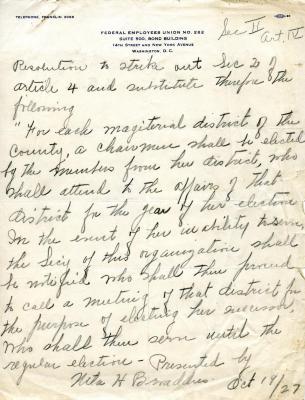 TELEPHONE, FRANKLIN
FEDERAL EMPLOYEES UNION NO. 262
SUITE 900, BOND BUILDING
14TH STREET AND NEW YORK AVENUE
WASHINGTON, D.C.
Sec II
Art. IV
Resolution to strike out Sec 2 of
article 4 and substitute therefor the
following
"For each magisterial district of the
County, a chairman shall be elected
by the members from her district, who
shall attend to the affairs of that
district for the year of her election
In the event of her inability to serve,
the Secy of this organization shall
be notified who shall then proceed
to call a meeting of that district for
the purpose of electing her successor,
who shall then serve until the
regular election - Presented by
Neta H Broaddus. Oct 19/27